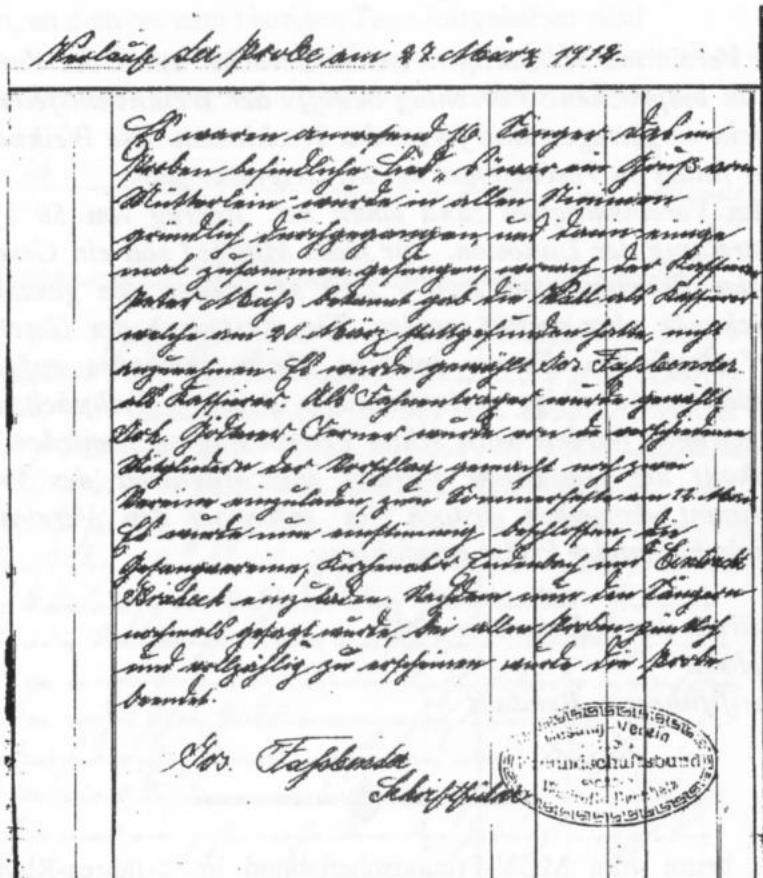 Verlauf der Probe am 27 März 1912.
Es waren anwesend 16. Sänger. Das in
Proben befindliche Lied, "Es war ein Gruß vom
Mütterlein" wurde in allen Stimmen
gründlich durchgegangen und dann einige
mal zusammen gesungen, wonach der Kassierer
Peter bekannt gab die Wahl als Kassierer
welche am 20 März stattgefunden hatte, nicht
anzunehmen. Es wurde gewählt Jos. Faßbender
als Kassierer. Als Fahnenträger wurde gewählt
Joh. Ferner wurde von
Mitgliedern der Vorschlag gemacht noch zwei
Vereine einzuladen, zum Sommerfeste am 12. Mai
Es wurde nun einstimmig beschlossen die
Gesangvereine, Kirchenchor Eudenbach und
einzuladen. Nachdem nun den Sängern
nochmals gesagt wurde, bei allen Proben pünktlich
und vollzählig zu erscheinen wurde die Probe
beendet.
Jos. Fassbender
Schriftführer
Gesang-Verein
Freundschaftsbund